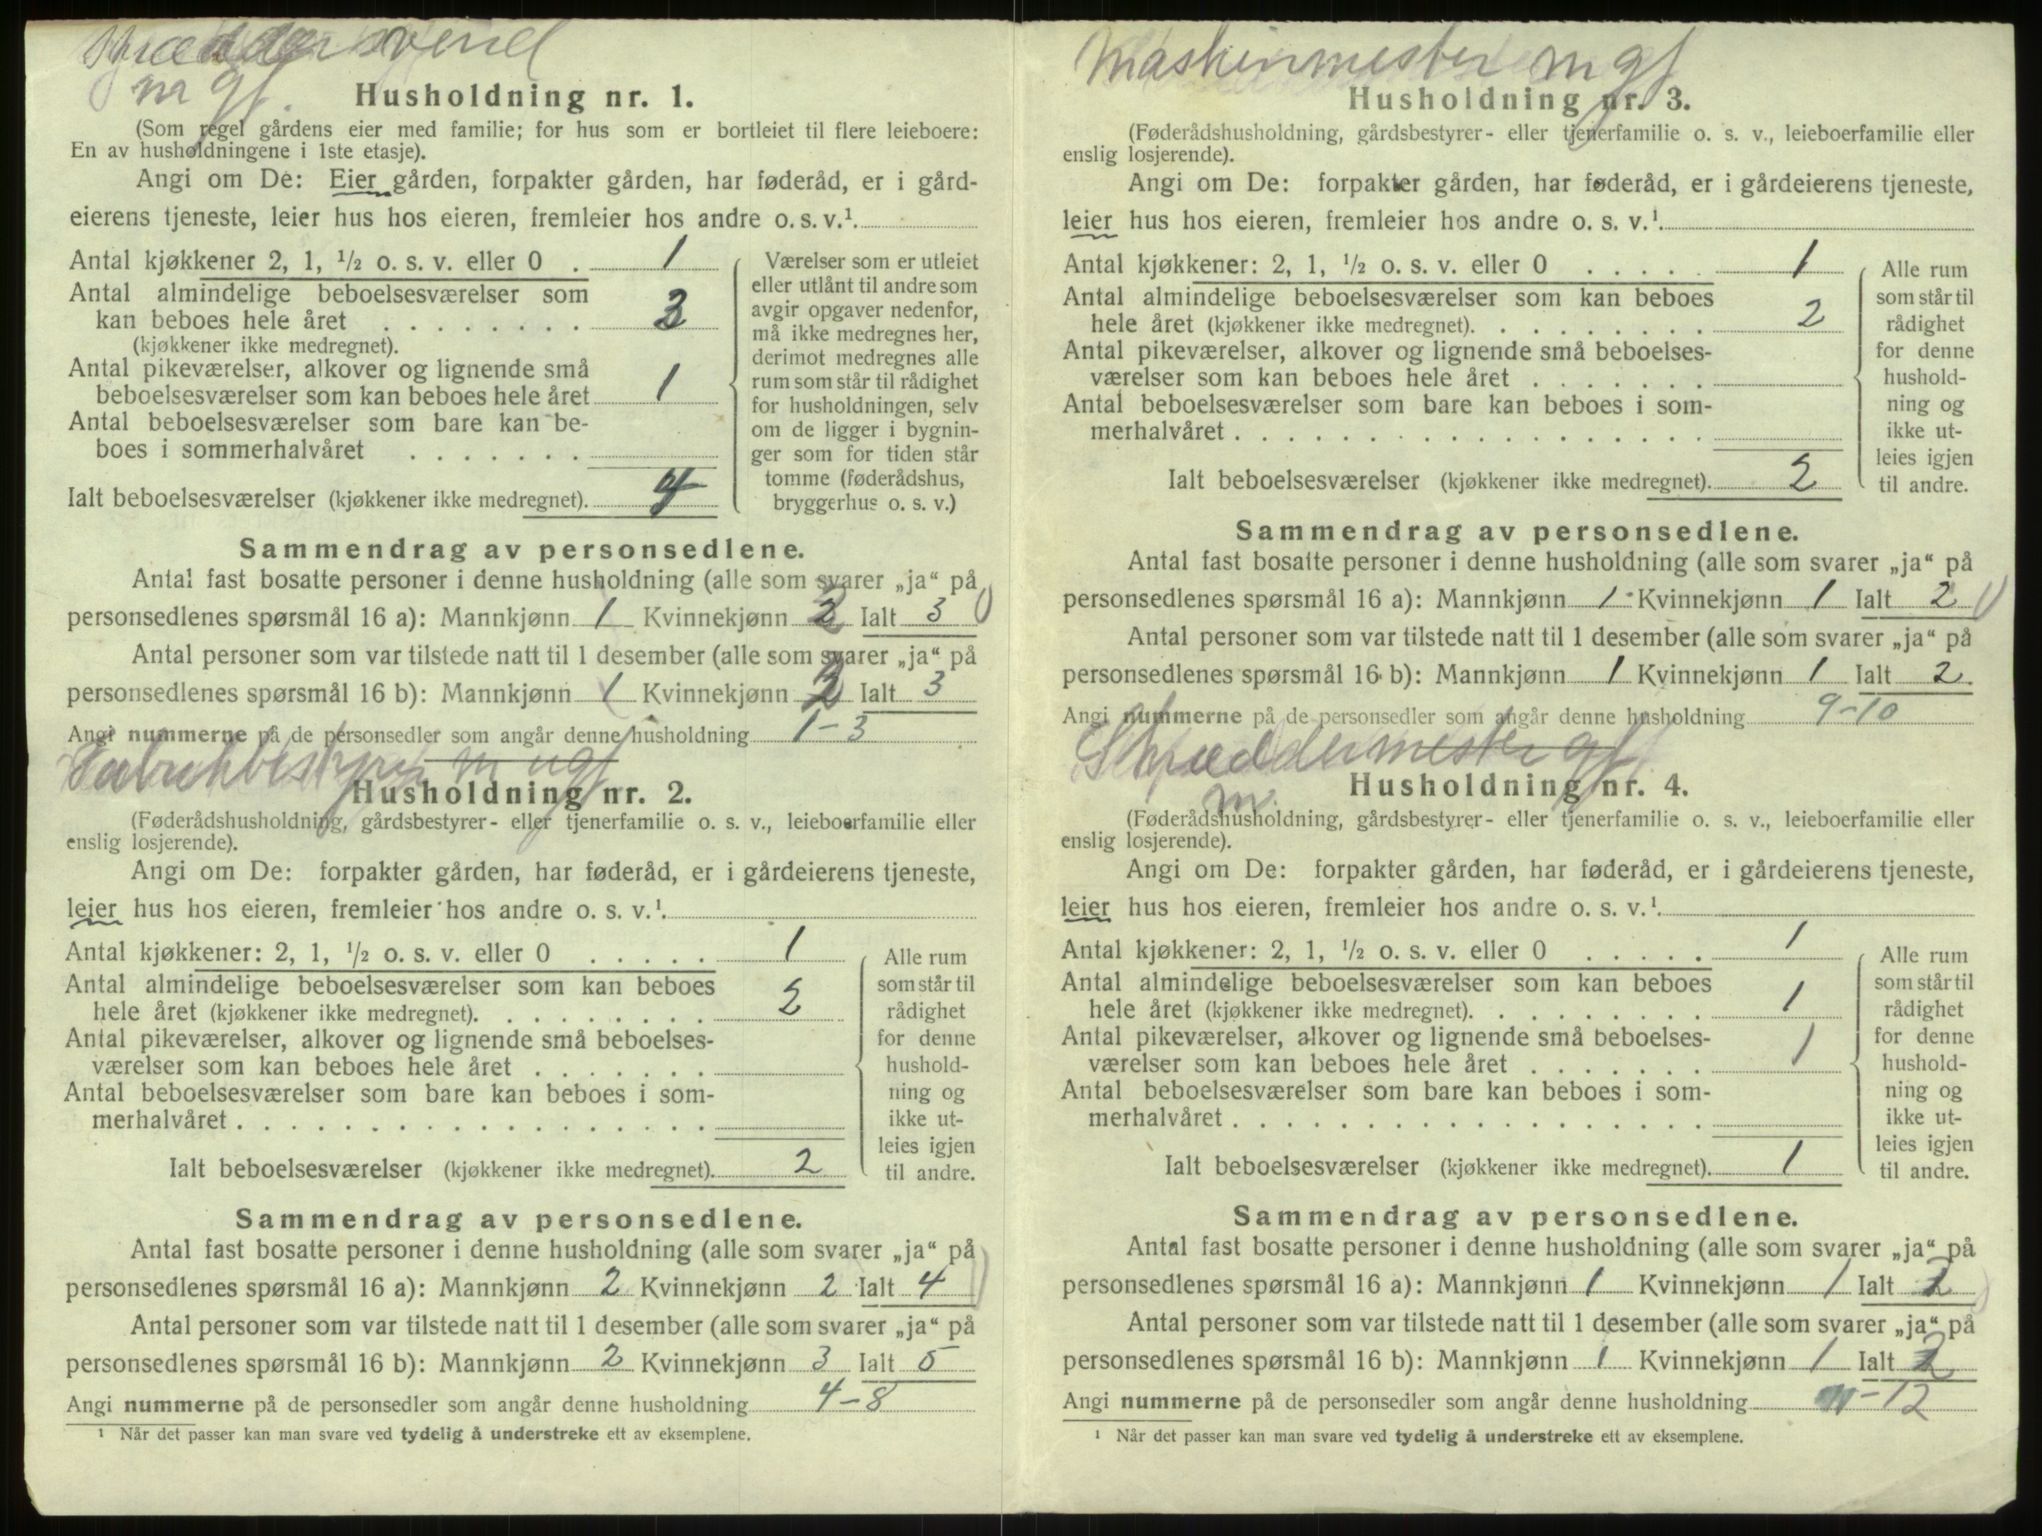 svend
m gf.
Husholdning nr. 1.
(Som regel gårdens eier med familie; for hus som er bortleiet til flere leieboere:
En av husholdningene i 1ste etasje).
Angi om De: Eier gården, forpakter gården, har føderåd, er i gård-
eierens tjeneste, leier hus hos eieren, fremleier hos andre o. s. v.¹.
Antal kjøkkener 2, 1, ½ o. s. v. eller 0 . 1
Antal almindelige beboelsesværelser som
kan beboes hele året . . . . . . . . 3
(kjøkkener ikke medregnet).
Antal pikeværelser, alkover og lignende små
beboelsesværelser som kan beboes hele året 1
Antal beboelsesværelser som bare kan be-
boes i sommerhalvåret . . . . . . .
Ialt beboelsesværelser (kjøkkener ikke medregnet). 4
Værelser som er utleiet
eller utlånt til andre som
avgir opgaver nedenfor,
må ikke medregnes her,
derimot medregnes alle
rum som står til rådighet
for husholdningen, selv
om de ligger i bygnin-
ger som for tiden står
tomme (føderådshus,
bryggerhus o. s. v.)
Sammendrag av personsedlene.
Antal fast bosatte personer i denne husholdning (alle som svarer „ja“ på
personsedlenes spørsmål 16 a): Mannkjønn 1 Kvinnekjønn 2 Ialt 3
Antal personer som var tilstede natt til 1 desember (alle som svarer „ja“ på
personsedlenes spørsmål 16 b): Mannkjønn 1 Kvinnekjønn 2 Ialt 3
Angi nummerne på de personsedler som angår denne husholdning 1-3
Fabrikbestyrer m ugf
Husholdning nr. 2.
(Føderådshusholdning, gårdsbestyrer- eller tjenerfamilie o. s. v., leieboerfamilie eller
enslig losjerende).
Angi om De: forpakter gården, har føderåd, er i gårdeierens tjeneste,
leier hus hos eieren, fremleier hos andre o. s. v.¹.
Antal kjøkkener: 2, 1, ½ o. s. v. eller 0 . . . . . 1
Antal almindelige beboelsesværelser som kan beboes
hele året (kjøkkener ikke medregnet). . . . . . . . . 2
Antal pikeværelser, alkover og lignende små beboelses-
værelser som kan beboes hele året . . . . . . .
Antal beboelsesværelser som bare kan beboes i som-
merhalvåret . . . . . . . . . . . . . . . . . .
Ialt beboelsesværelser (kjøkkener ikke medregnet). 2
Alle rum
som står til
rådighet
for denne
hushold-
ning og
ikke ut-
leies igjen
til andre.
Sammendrag av personsedlene.
Antal fast bosatte personer i denne husholdning (alle som svarer „ja“ på
personsedlenes spørsmål 16 a): Mannkjønn 2 Kvinnekjønn 2 Ialt 4
Antal personer som var tilstede natt til 1 desember (alle som svarer „ja“ på
personsedlenes spørsmål 16 b): Mannkjønn 2 Kvinnekjønn 3 Ialt 5
Angi nummerne på de personsedler som angår denne husholdning 4-8
¹ Når det passer kan man svare ved tydelig å understreke ett av eksemplene.
Maskinmester m gf
Husholdning nr. 3.
(Føderådshusholdning, gårdsbestyrer- eller tjenerfamilie o. s. v., leieboerfamilie eller
enslig losjerende).
Angi om De: forpakter gården, har føderåd, er i gårdeierens tjeneste,
leier hus hos eieren, fremleier hos andre o. s. v.¹.
Antal kjøkkener: 2, 1, ½ o. s. v. eller 0 . . . . . 1
Antal almindelige beboelsesværelser som kan beboes
hele året (kjøkkener ikke medregnet). . . . . . . . . 2
Antal pikeværelser, alkover og lignende små beboelses-
værelser som kan beboes hele året . . . . . . .
Antal beboelsesværelser som bare kan beboes i som-
merhalvåret . . . . . . . . . . . . . . . . . .
Ialt beboelsesværelser (kjøkkener ikke medregnet). 2
Alle rum
som står til
rådighet
for denne
hushold-
ning og
ikke ut-
leies igjen
til andre.
Sammendrag av personsedlene.
Antal fast bosatte personer i denne husholdning (alle som svarer „ja“ på
personsedlenes spørsmål 16 a): Mannkjønn 1 Kvinnekjønn 1 Ialt 2
Antal personer som var tilstede natt til 1 desember (alle som svarer „ja“ på
personsedlenes spørsmål 16 b): Mannkjønn 1 Kvinnekjønn 1 Ialt 2
Angi nummerne på de personsedler som angår denne husholdning 9-10
Skræddermester gf
m.
Husholdning nr. 4.
(Føderådshusholdning, gårdsbestyrer- eller tjenerfamilie o. s. v., leieboerfamilie eller
enslig losjerende).
Angi om De: forpakter gården, har føderåd, er i gårdeierens tjeneste,
leier hus hos eieren, fremleier hos andre o. s. v.¹.
Antal kjøkkener: 2, 1, ½ o. s. v. eller 0 . . . . . 1
Antal almindelige beboelsesværelser som kan beboes
hele året (kjøkkener ikke medregnet). . . . . . . . . 1
Antal pikeværelser, alkover og lignende små beboelses-
værelser som kan beboes hele året . . . . . . . 1
Antal beboelsesværelser som bare kan beboes i som-
merhalvåret . . . . . . . . . . . . . . . . . .
Ialt beboelsesværelser (kjøkkener ikke medregnet). 1
Alle rum
som står til
rådighet
for denne
hushold-
ning og
ikke ut-
leies igjen
til andre.
Sammendrag av personsedlene.
Antal fast bosatte personer i denne husholdning (alle som svarer „ja“ på
personsedlenes spørsmål 16 a): Mannkjønn 1 Kvinnekjønn 1 Ialt 2
Antal personer som var tilstede natt til 1 desember (alle som svarer „ja“ på
personsedlenes spørsmål 16 b): Mannkjønn 1 Kvinnekjønn 1 Ialt 2
Angi nummerne på de personsedler som angår denne husholdning 11-12
¹ Når det passer kan man svare ved tydelig å understreke ett av eksemplene.